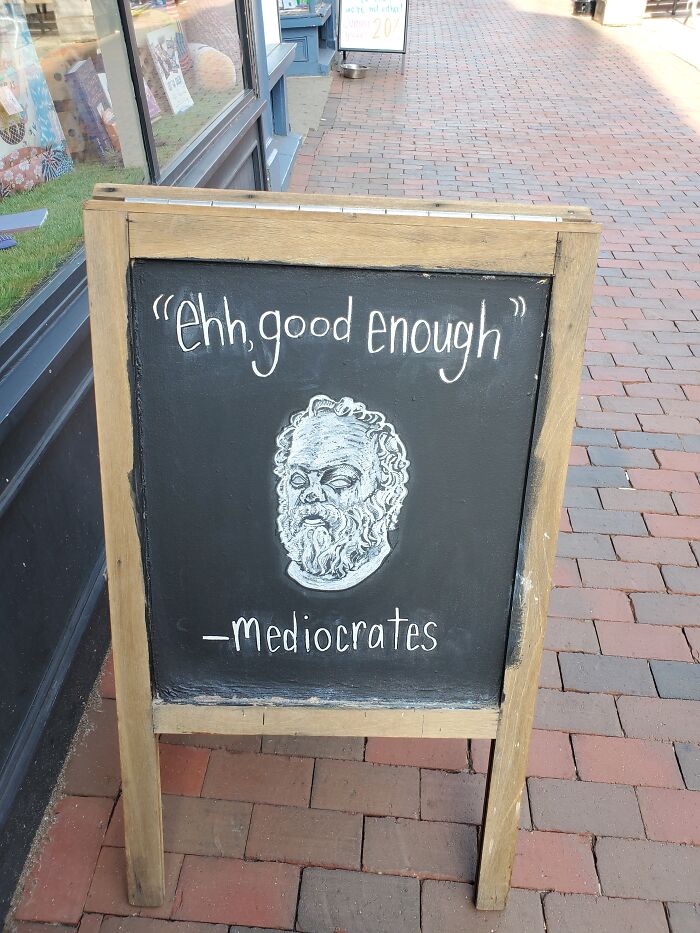 "ehh, good enough"
-Mediocrates